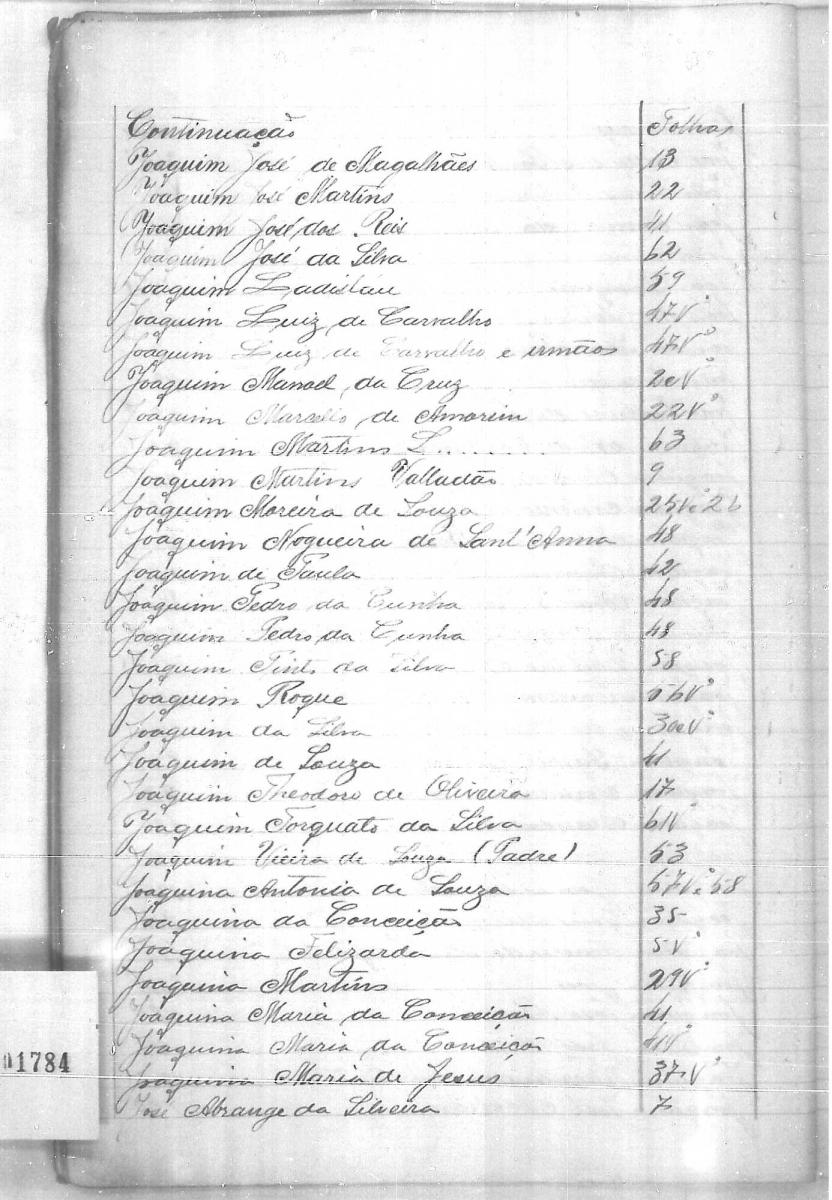 Continuação Folhas
Joaquim José de Magalhães 13
Joaquim José Martins 22
Joaquim José dos Reis 41
Joaquim José da Silva 62
Joaquim Ladisláu 59
Joaquim Luiz de Carvalho 47Vº
Joaquim Luiz de Carvalho e irmãos 47Vº
Joaquim Manoel da Cruz 2eVº
Joaquim Marcello de Amorim 22Vº
Joaquim Martins L........ 63
Joaquim Martins Valladão 9
Joaquim Moreira de Souza 25Vº e 26
Joaquim Nogueira de Sant'Anna 48
Joaquim de Paula 42
Joaquim Pedro da Cunha 48
Joaquim Pedro da Cunha 48
Joaquim Pinto da Silva 58
Joaquim Roque 56Vº
Joaquim da Silva 30eVº
Joaquim de Souza 41
Joaquim Theodoro de Oliveira 17
Joaquim Torquato da Silva 61V
Joaquim Vieira de Souza (Padre) 53
Joaquina Antonia de Souza 57Vº e 58
Joaquina da Conceição 35
Joaquina Felizarda 5Vº
Joaquina Martins 29Vº
Joaquina Maria da Conceição 41
Joaquina Maria da Conceição 41Vº
Joaquina Maria de Jesus 37Vº
José Abrange da Silveira 7
01784